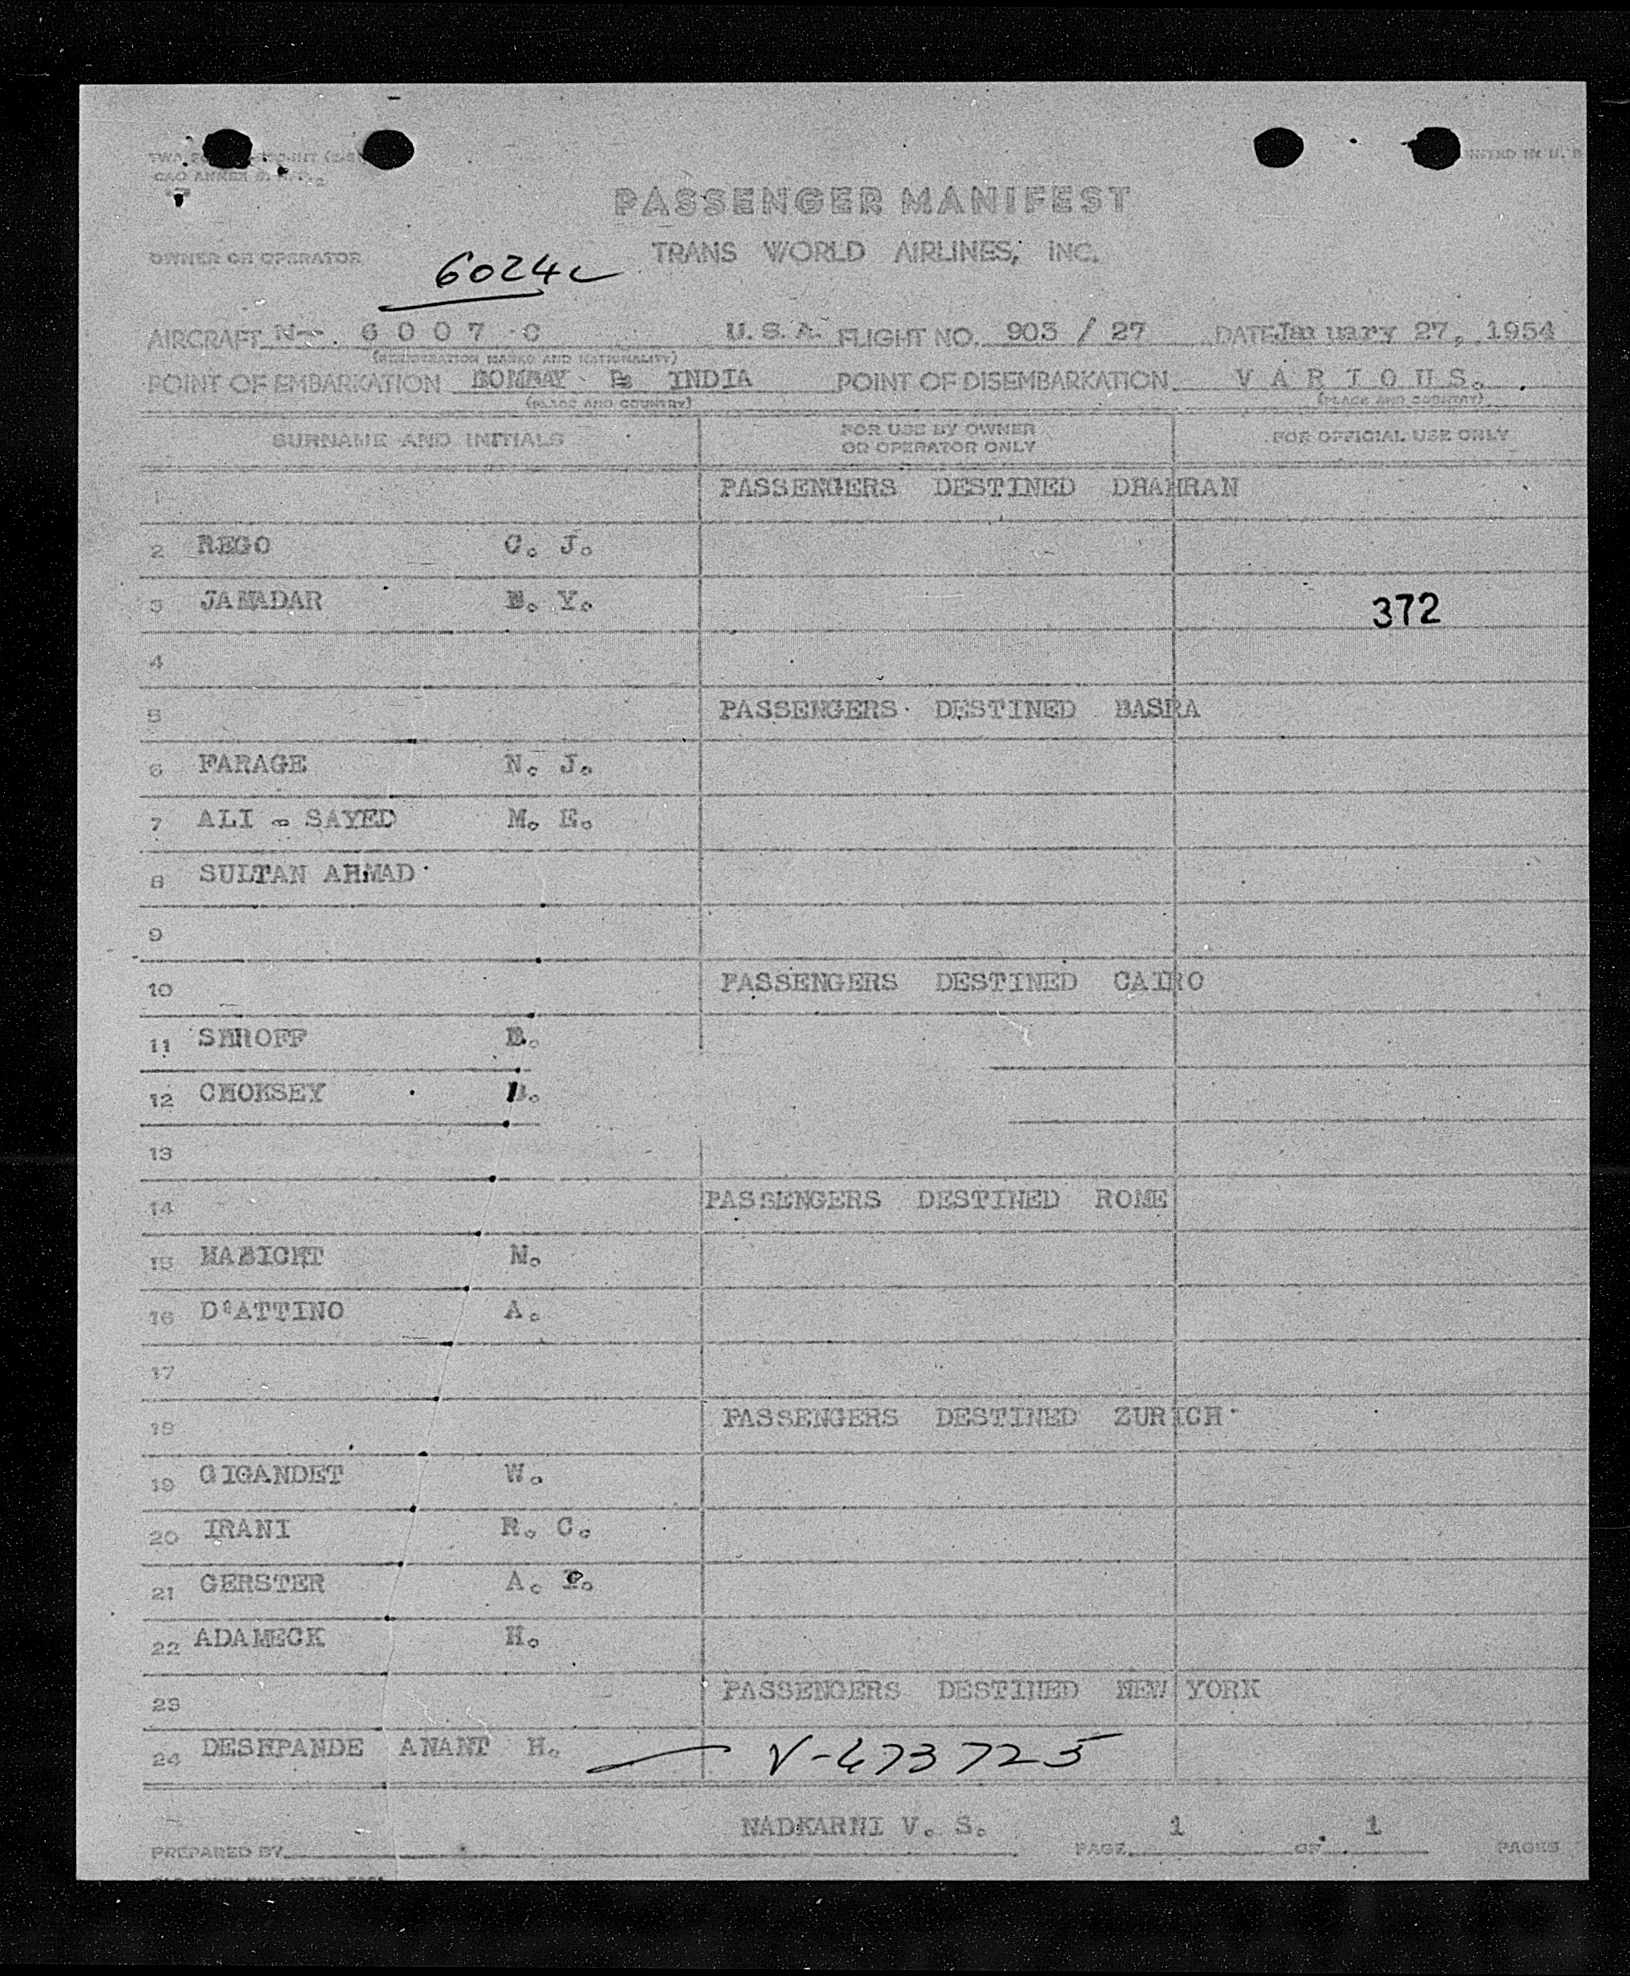 PASSENGER MANIFEST
OWNER OR OPERATOR 6024C TRANS WORLD AIRLINES, INC.
AIRCRAFT N-. 6 0 0 7 C U.S.A. FLIGHT NO. 903 / 27 DATE January 27, 1954
(REGISTRATION MARKS AND NATIONALITY)
POINT OF EMBARKATION BOMBAY INDIA POINT OF DISEMBARKATION V A R I O U S.
(PLACE AND COUNTRY) (PLACE AND COUNTRY)
SURNAME AND INITIALS FOR USE BY OWNER OR OPERATOR ONLY FOR OFFICIAL USE ONLY
1 PASSENGERS DESTINED DHAHRAN
2 REGO C. J.
3 JAMADAR Y. 372
4
5 PASSENGERS DESTINED BASRA
6 FARAGE N. J.
7 ALI - SAYED M. E.
8 SULTAN AHMAD
9
10 PASSENGERS DESTINED CAIRO
11 SHROFF
12 CHOKSEY
13
14 PASSENGERS DESTINED ROME
15 HABICHT N.
16 D'ATTINO A.
17
18 PASSENGERS DESTINED ZURICH
19 GIGANDET W.
20 IRANI R. C.
21 GERSTER A.
22 ADAMECK H.
23 PASSENGERS DESTINED NEW YORK
24 DESHPANDE ANANT H. V-673725
NADKARNI V. S.
PREPARED BY PAGE 1 OF 1 PAGES